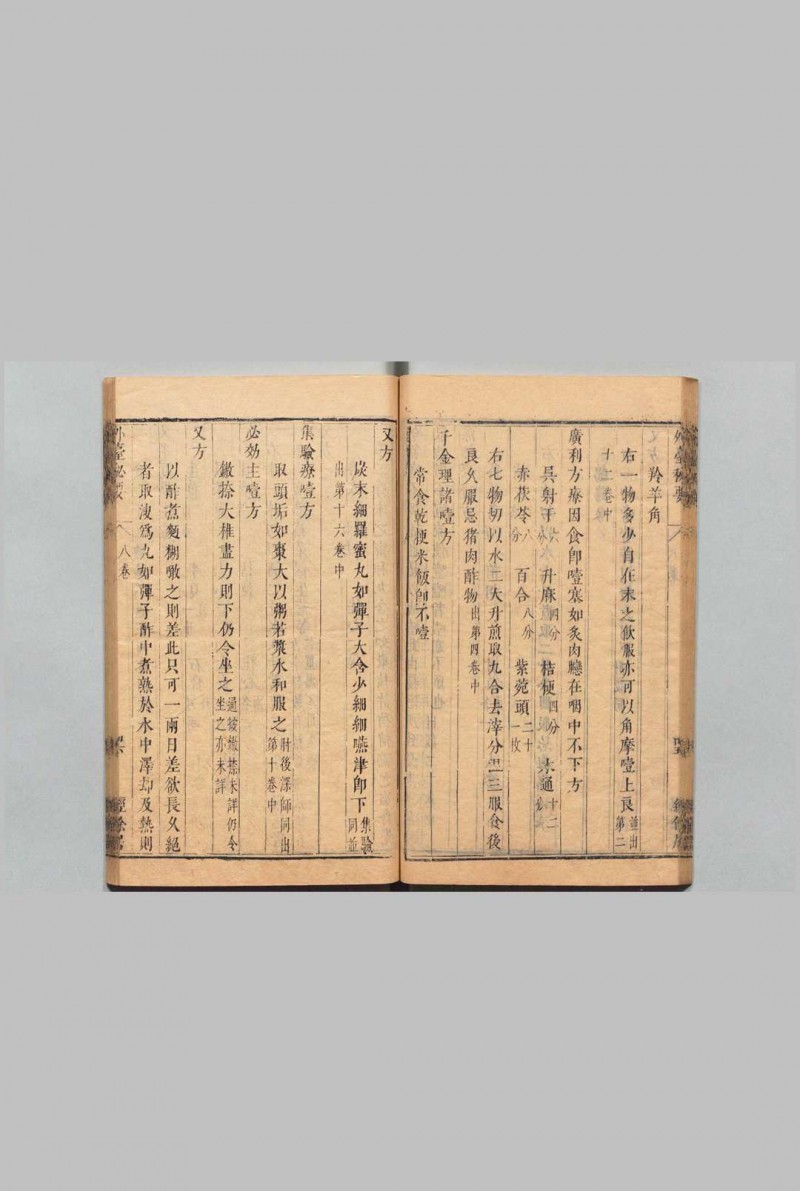 外臺秘要
羚羊角
右一物多少自在末之飲服亦可以角摩噎上良並出第二
十二卷中
廣利方療因食卽噎塞如炙肉臠在咽中不下方
射干六分 升麻四分 桔梗四分 木通十二
赤茯苓八分 百合八分 紫菀頭二十一枚
右七物切以水二大升煎取九合去滓分溫三服食後
良久服忌猪肉酢物出第四卷中
千金理諸噎方
常食乾粳米飯卽不噎
又方
炭末細羅蜜丸如彈子大含少細細嚥津卽下集驗同並
出第十六卷中
集驗療噎方
取頭垢如棗大以粥若漿水和服之肘後深師同出第十卷中
必効主噎方
鐵捺大椎盡力則下仍令坐之
又方
以酢煮麵糊噉之則差此只可一兩日差欲長久絕
者取溲爲丸如彈子酢中煮熟於水中澤却及熱則
外臺秘要 八卷 經餘居